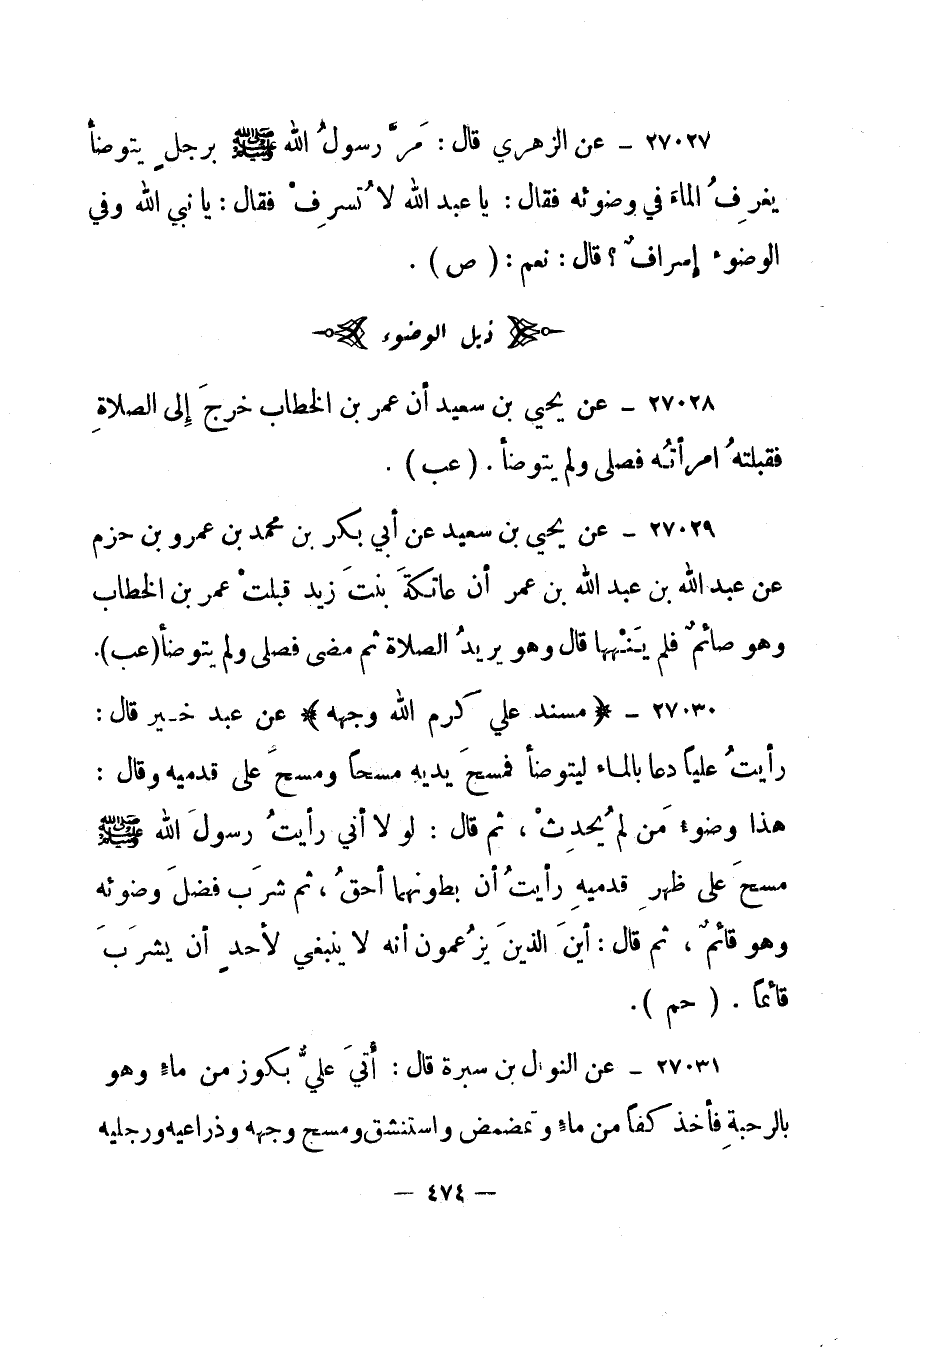 ٢٧٠٢٧ - عن الزهري قال : مَرَّ رسولُ الله ﷺ برجلٍ يتوضأُ
يغرِفُ الماءَ في وضوئه فقال : يا عبد الله لا تُسرِفْ فقال : يا نبي الله وفي
الوضوء إسرافٌ ؟ قال : نعم : ( ص ) .
ذيل الوضوء
٢٧٠٢٨ - عن يحيى بن سعيد أن عمر بن الخطاب خرجَ إِلى الصلاةِ
فقبلتهُ امرأتُه فصلى ولم يتوضأ . ( عب ) .
٢٧٠٢٩ - عن يحيى بن سعيد عن أبي بكر بن محمد بن عمرو بن حزم
عن عبد الله بن عبد الله بن عمر أن عاتكةَ بنتَ زيد قبلتْ عمر بن الخطاب
وهو صائمٌ فلم يَنْهها قال وهو يريدُ الصلاة ثم مضى فصلى ولم يتوضأ (عب).
٢٧٠٣٠ - ﴿ مسند علي كرم الله وجهه ﴾ عن عبد خير قال :
رأيتُ علياً دعا بالماء ليتوضأ فمسحَ يديهِ مسحاً ومسحَ على قدميه وقال :
هذا وضوءُ مَن لم يُحدِثْ ، ثم قال : لو لا أني رأيتُ رسولَ الله ﷺ
مسحَ على ظهرِ قدميهِ رأيتُ أن بطونهما أحقُ ، ثم شرَب فضلَ وضوئه
وهو قائمٌ ، ثم قال : أينَ الذينَ يزعُمون أنه لا ينبغي لأحدٍ أن يشرَبَ
قائماً . ( حم ).
٢٧٠٣١ - عن النوال بن سبرة قال : أُتيَ عليٌّ بكوز من ماءٍ وهو
بالرحبةِ فأخذ كفاً من ماءٍ وتمضمض واستنشق ومسح وجهه وذراعيه ورجليه
— ٤٧٤ —